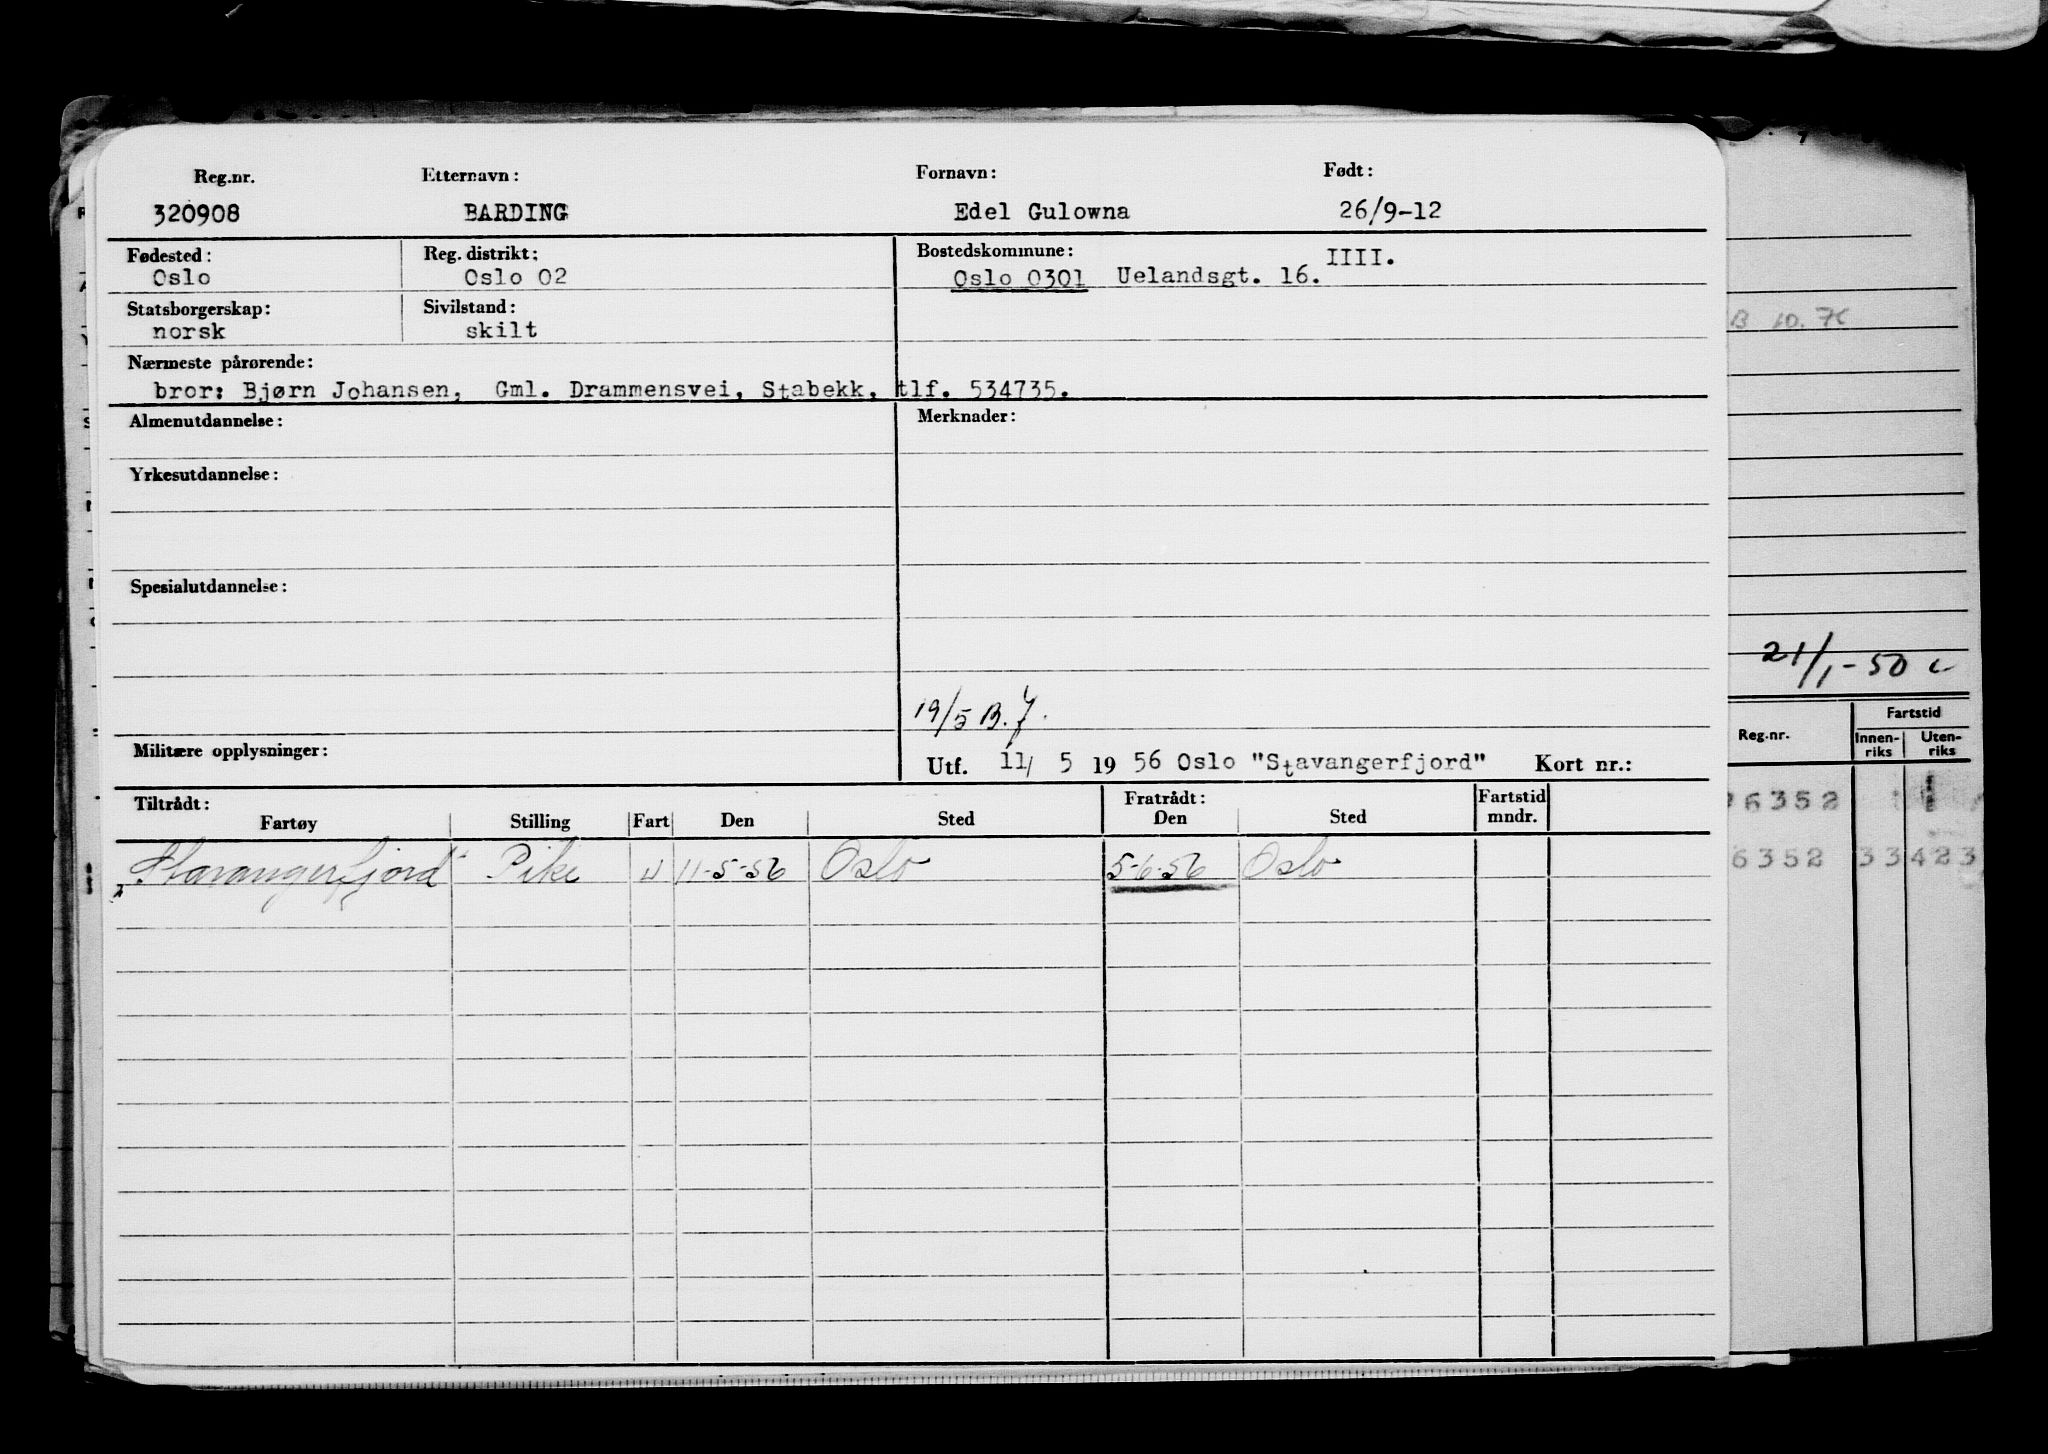 Reg.nr. Etternavn: Fornavn: Født:
320908 BARDING Edel Gulowna 26/9-12
Fødested: Reg. distrikt: Bostedskommune: IIII.
Oslo Oslo 02 Oslo 0301 Uelandsgt. 16.
Statsborgerskap: Sivilstand:
norsk skilt
Nærmeste pårørende:
bror: Bjørn Johansen, Gml. Drammensvei, Stabekk, tlf. 534735.
Almenutdannelse: Merknader:
Yrkesutdannelse:
Spesialutdannelse:
19/5 B.J.
Militære opplysninger:
Utf. 11/ 5 19 56 Oslo "Stavangerfjord" Kort nr.:
Tiltrådt: Fratrådt: Fartstid
Fartøy Stilling Fart Den Sted Den Sted mndr.
"Stavangerfjord" Pike U 11-5-56 Oslo 5-6-56 Oslo
B 10.
21/1-50
Reg.nr. Fartstid
Innen- Uten-
riks riks
6352
6352 33423